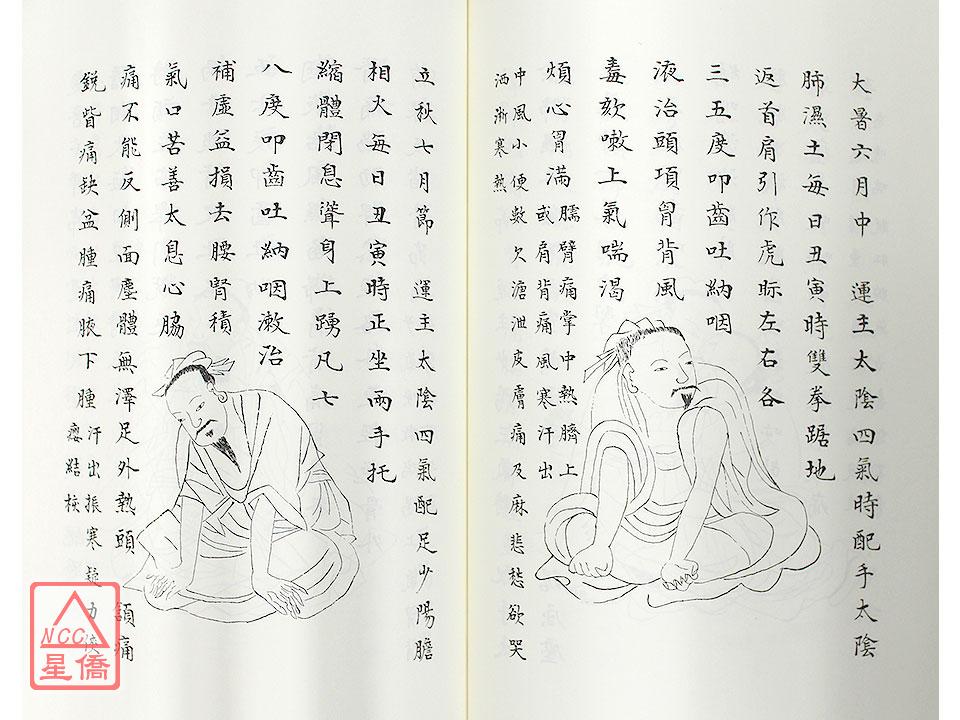 大暑六月中 運主太陰四氣時配手太陰
肺濕土每日丑寅時雙拳踞地
返首肩引作虎眎左右各
三五度叩齒吐納咽
液治頭項胷背風
毒欬嗽上氣喘渴
煩心胷滿臑臂痛掌中熱臍上
或肩背痛風寒汗出
中風小便數欠溏泄皮膚痛及麻悲愁欲哭
洒淅寒熱
立秋七月節 運主太陰四氣配足少陽膽
相火每日丑寅時正坐兩手托
縮體閉息聳身上踴凡七
八度叩齒吐納咽漱治
補虛益損去腰腎積
氣口苦善太息心脇
痛不能反側面塵體無澤足外熱頭 頷痛
銳眥痛缺盆腫痛腋下腫汗出振寒
瘿結核
NCC
星僑